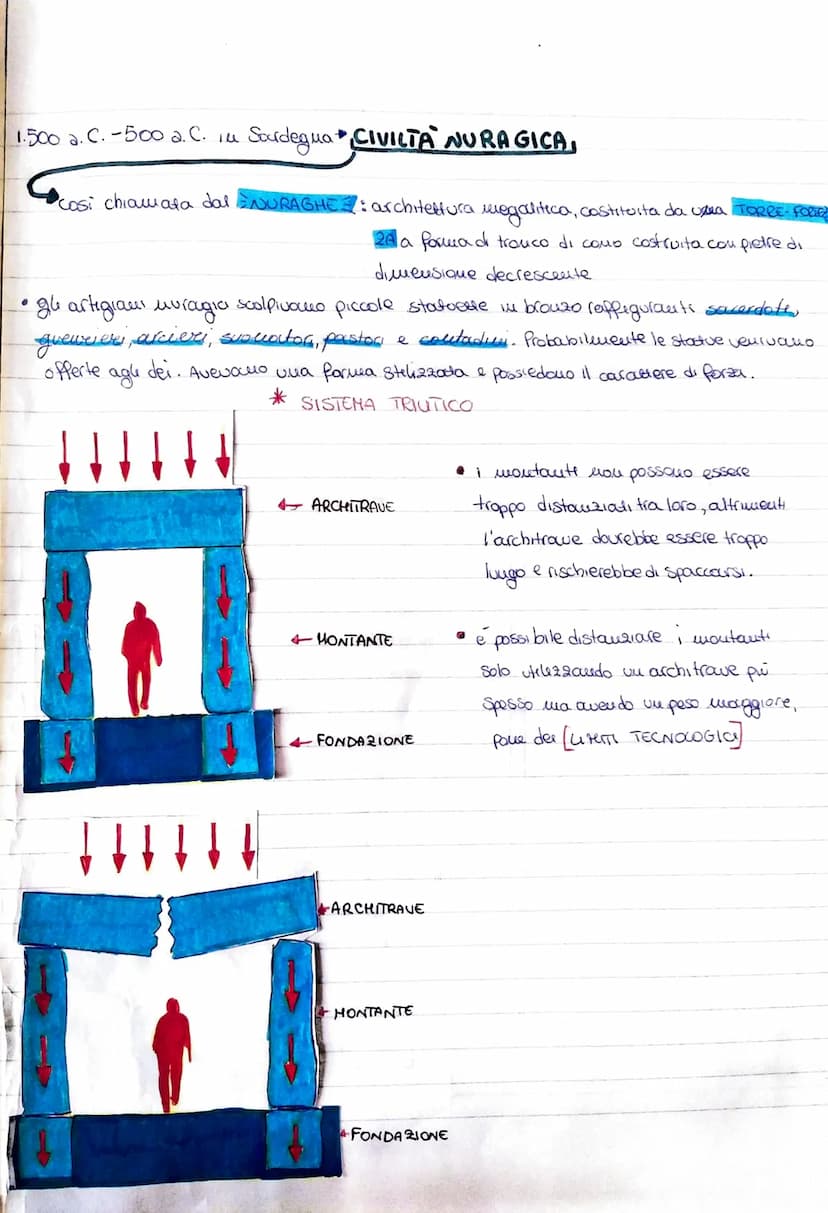 1.500 a.C. - 500 a.C. in Sardegna → CIVILTÀ NURAGICA
così chiamata dal NURAGHE : architettura megalitica, costituita da una TORRE-FORTEZ
ZA a forma di tronco di cono costruita con pietre di
dimensione decrescente
• gli artigiani nuragici scolpivano piccole statuette in bronzo raffiguranti sacerdoti,
guerrieri, arcieri, suonatori, pastori e contadini. Probabilmente le statue venivano
offerte agli dei. Avevano una forma stilizzata e possiedono il carattere di forza.
* SISTEMA TRILITICO
← ARCHITRAVE
← MONTANTE
← FONDAZIONE
• i montanti non possono essere
troppo distanziati tra loro, altrimenti
l'architrave dovrebbe essere troppo
lungo e rischierebbe di spaccarsi.
• è possibile distanziare i montanti
solo utilizzando un architrave più
spesso ma avendo un peso maggiore,
pone dei [LIMITI TECNOLOGICI]
ARCHITRAVE
MONTANTE
FONDAZIONE